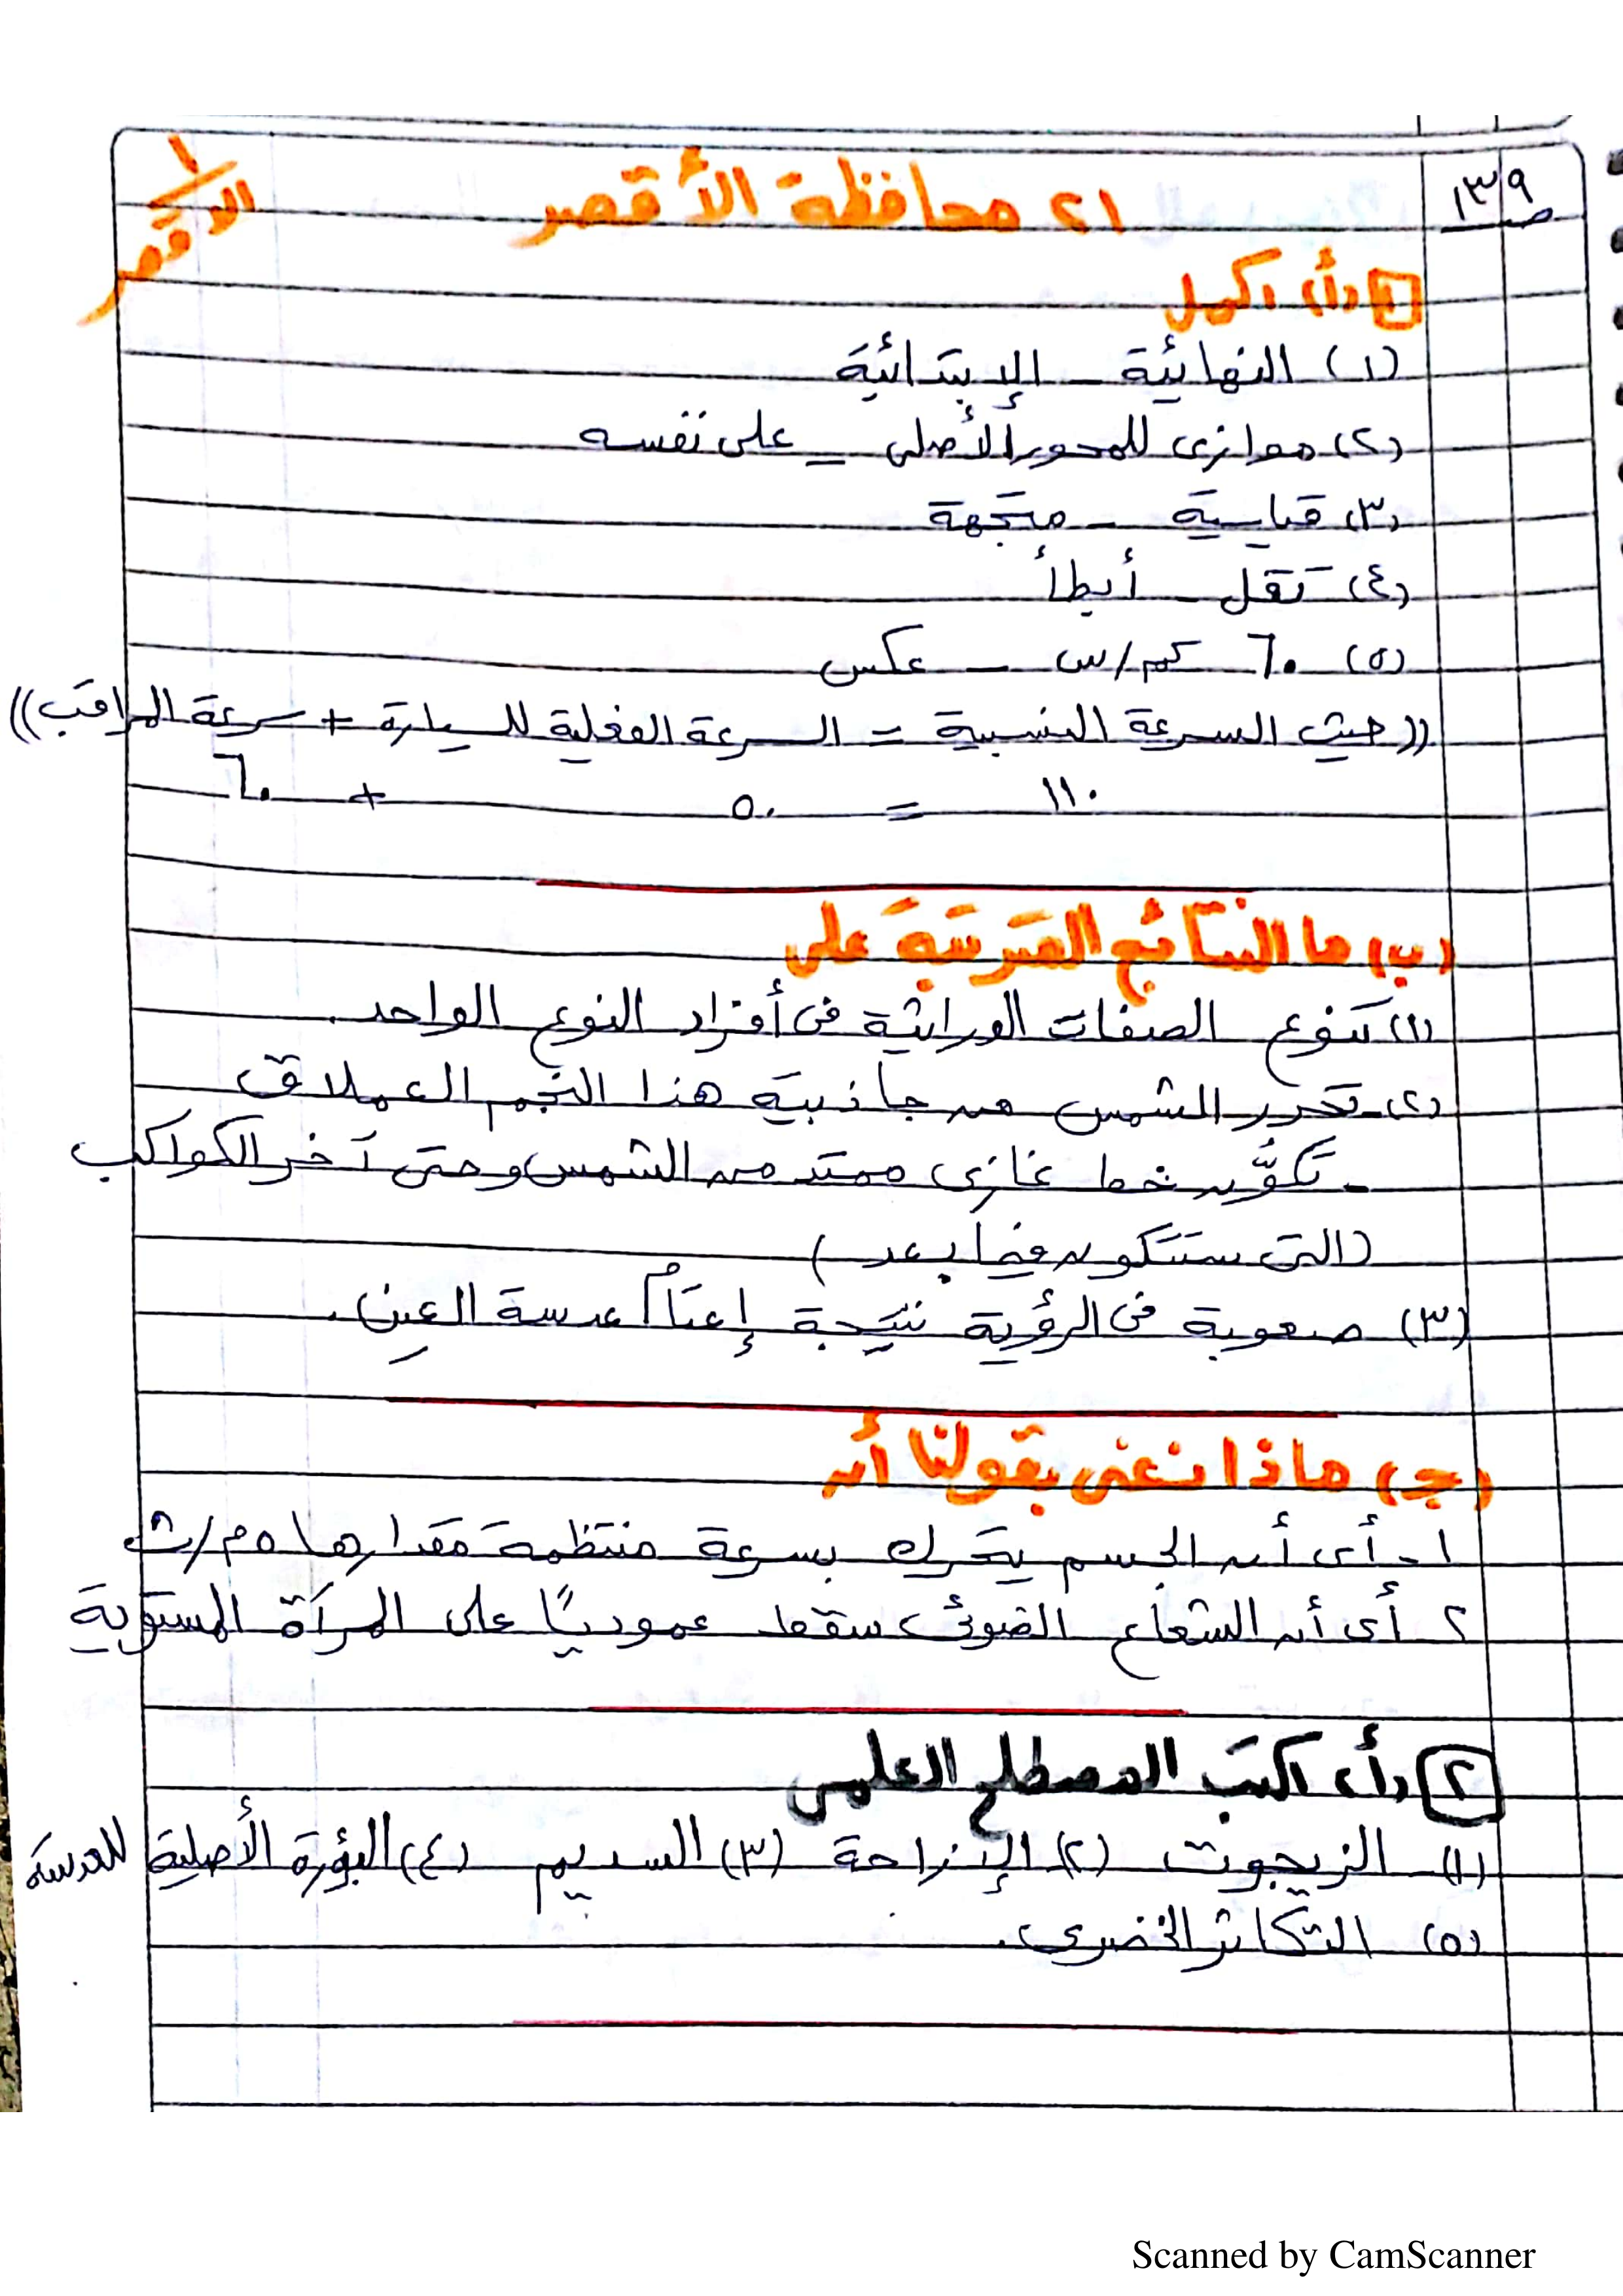 ص ١٣٩
٢١ محافظة الأقصر
١ الأقصر
١ (أ) أكمل
(١) النهائية - الإبتدائية
(٢) موازى للمحور الأصلى - على نفسه
(٣) قياسية - متجهة
(٤) تقل - أبطأ
(٥) ٦٠ كم/س - عكس
((حيث السرعة النسبية = السرعة الفعلية للسيارة + سرعة المراقب))
١١٠ = ٥٠ + ٦٠
(ب) ما النتائج المترتبة على
(١) تنوع الصفات الوراثية فى أفراد النوع الواحد.
(٢) - تحرر الشمس من جاذبية هذا النجم العملاق
- تكوُّن خط غازى ممتد من الشمس وحتى آخر الكواكب
(التى ستتكون فيما بعد)
(٣) صعوبة فى الرؤية نتيجة إعتام عدسة العين.
(ج) ماذا نعنى بقولنا أن
١ - أى أن الجسم يتحرك بسرعة منتظمة مقدارها ٥ م/ث
٢ - أى أن الشعاع الضوئى سقط عموديًا على المرآة المستوية
٢ (أ) اكتب المصطلح العلمى
(١) الزيجوت (٢) الإزاحة (٣) السديم (٤) البؤرة الأصلية للعدسة
(٥) التكاثر الخضرى.
Scanned by CamScanner